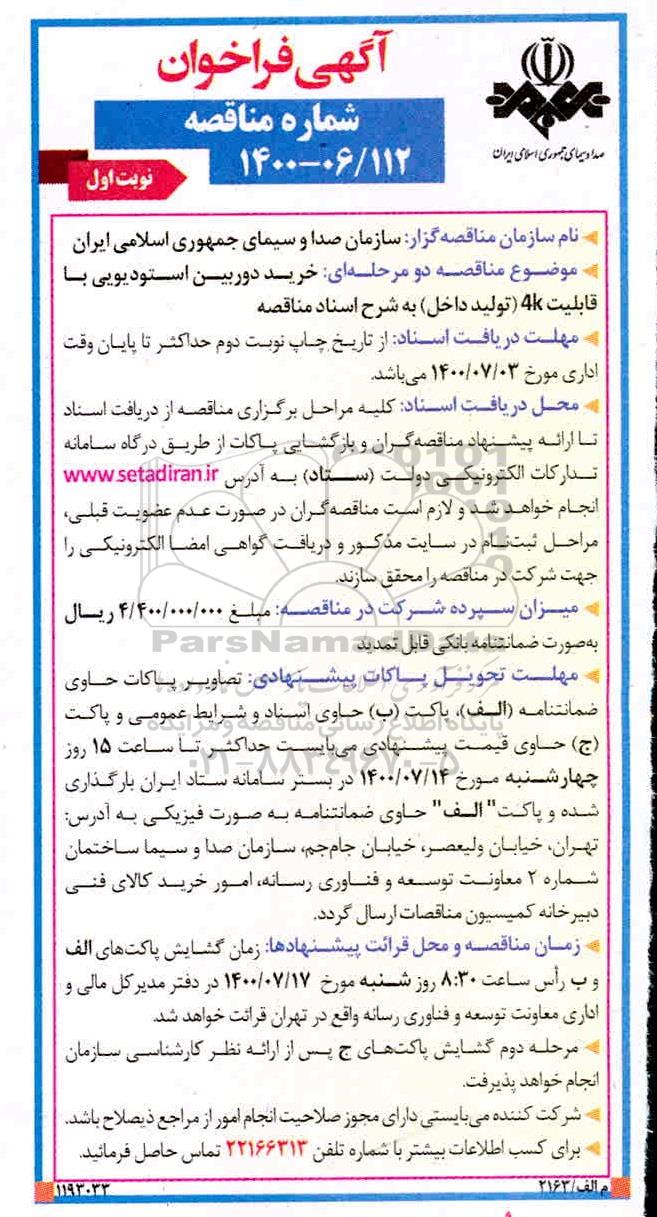 آگهی فراخوان
شماره مناقصه
۱۴۰۰-۰۶/۱۱۲
نوبت اول
صدا و سیمای جمهوری اسلامی ایران
نام سازمان مناقصه‌گزار: سازمان صدا و سیمای جمهوری اسلامی ایران
موضوع مناقصه دو مرحله‌ای: خرید دوربین استودیویی با
قابلیت 4k (تولید داخل) به شرح اسناد مناقصه
مهلت دریافت اسناد: از تاریخ چاپ نوبت دوم حداکثر تا پایان وقت
اداری مورخ ۱۴۰۰/۰۷/۰۳ می‌باشد.
محل دریافت اسناد: کلیه مراحل برگزاری مناقصه از دریافت اسناد
تا ارائه پیشنهاد مناقصه‌گران و بازگشایی پاکات از طریق درگاه سامانه
تدارکات الکترونیکی دولت (ستاد) به آدرس www.setadiran.ir
انجام خواهد شد و لازم است مناقصه‌گران در صورت عدم عضویت قبلی،
مراحل ثبت‌نام در سایت مذکور و دریافت گواهی امضا الکترونیکی را
جهت شرکت در مناقصه را محقق سازند.
میزان سپرده شرکت در مناقصه: مبلغ ۴/۴۰۰/۰۰۰/۰۰۰ ریال
به‌صورت ضمانتنامه بانکی قابل تمدید
ParsNamadData
مهلت تحویل پاکات پیشنهادی: تصاویر پاکات حاوی
ضمانتنامه (الف)، پاکت (ب) حاوی اسناد و شرایط عمومی و پاکت
پایگاه اطلاع رسانی مناقصه و مزایده
(ج) حاوی قیمت پیشنهادی می‌بایست حداکثر تا ساعت ۱۵ روز
۰۲۱-۸۸۳۴۹۶۷۰-۵
چهارشنبه مورخ ۱۴۰۰/۰۷/۱۴ در بستر سامانه ستاد ایران بارگذاری
شده و پاکت "الف" حاوی ضمانتنامه به صورت فیزیکی به آدرس:
تهران، خیابان ولیعصر، خیابان جام‌جم، سازمان صدا و سیما ساختمان
شماره ۲ معاونت توسعه و فناوری رسانه، امور خرید کالای فنی
دبیرخانه کمیسیون مناقصات ارسال گردد.
زمان مناقصه و محل قرائت پیشنهادها: زمان گشایش پاکت‌های الف
و ب رأس ساعت ۸:۳۰ روز شنبه مورخ ۱۴۰۰/۰۷/۱۷ در دفتر مدیرکل مالی و
اداری معاونت توسعه و فناوری رسانه واقع در تهران قرائت خواهد شد.
مرحله دوم گشایش پاکت‌های ج پس از ارائه نظر کارشناسی سازمان
انجام خواهد پذیرفت.
شرکت کننده می‌بایستی دارای مجوز صلاحیت انجام امور از مراجع ذیصلاح باشد.
برای کسب اطلاعات بیشتر با شماره تلفن ۲۲۱۶۶۳۱۳ تماس حاصل فرمائید.
م الف/۲۱۶۳
۱۱۹۳۰۳۳